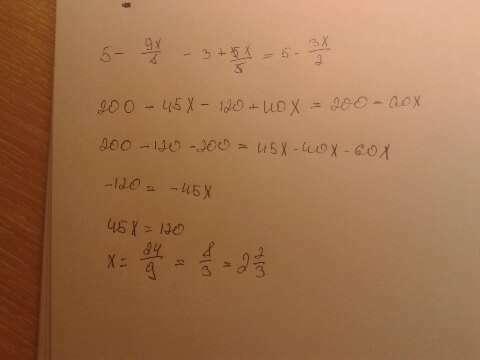 5 - 9x/8 - 3 + 5x/5 = 5 - 3x/2
200 - 45x - 120 + 40x = 200 - 60x
200 - 120 - 200 = 45x - 40x - 60x
-120 = -45x
45x = 120
x = 24/9 = 8/3 = 2 2/3